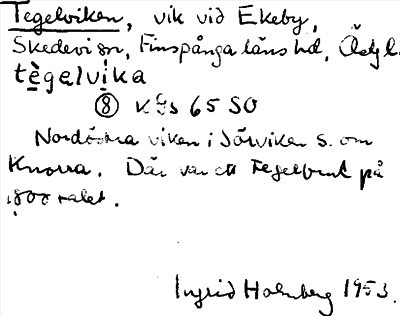 Tegelviken, vik vid Ekeby,
Skedevi sn, Finspånga läns hd, Östg l.
tègelvika
⑧ K Gs 65 SO
Nordöstra viken i Sörviken S. om
Knorra. Där var ett tegelbruk på
1800 talet.
Ingrid Holmberg 1953.